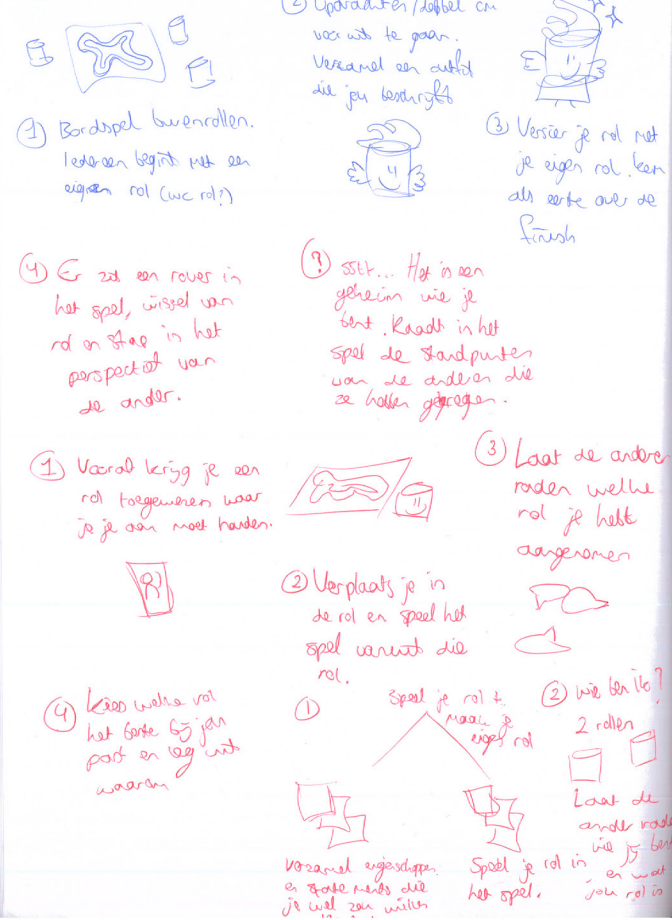 ① Bordspel buurenrollen.
Iedereen begint met een
eigen rol (wc rol?)
② Opdrachten/dobbel om
vooruit te gaan.
Verzamel een outfit
die jou beschrijft
③ Versier je rol met
je eigen rol. kom
als eerste over de
finish
④ Er zit een rover in
het spel, wissel van
rol en stap in het
perspectief van
de ander.
? sstt... Het is een
geheim wie je
bent. Raadt in het
spel de standpunten
van de anderen die
ze hebben gekregen.
① Vooraf krijg je een
rol toegewezen waar
je je aan moet houden.
② Verplaats je in
de rol en speel het
spel vanuit die
rol.
③ Laat de anderen
raden welke
rol je hebt
aangenomen
④ Kies welke rol
het beste bij jou
past en leg uit
waarom
①
Speel je rol +
maak je
eigen rol
Verzamel eigenschappen
en statements die
je wel zou willen
Speel je rol in
het spel.
② wie ben ik?
2 rollen
Laat de
ander raden
wie jij bent
en wat
jou rol is